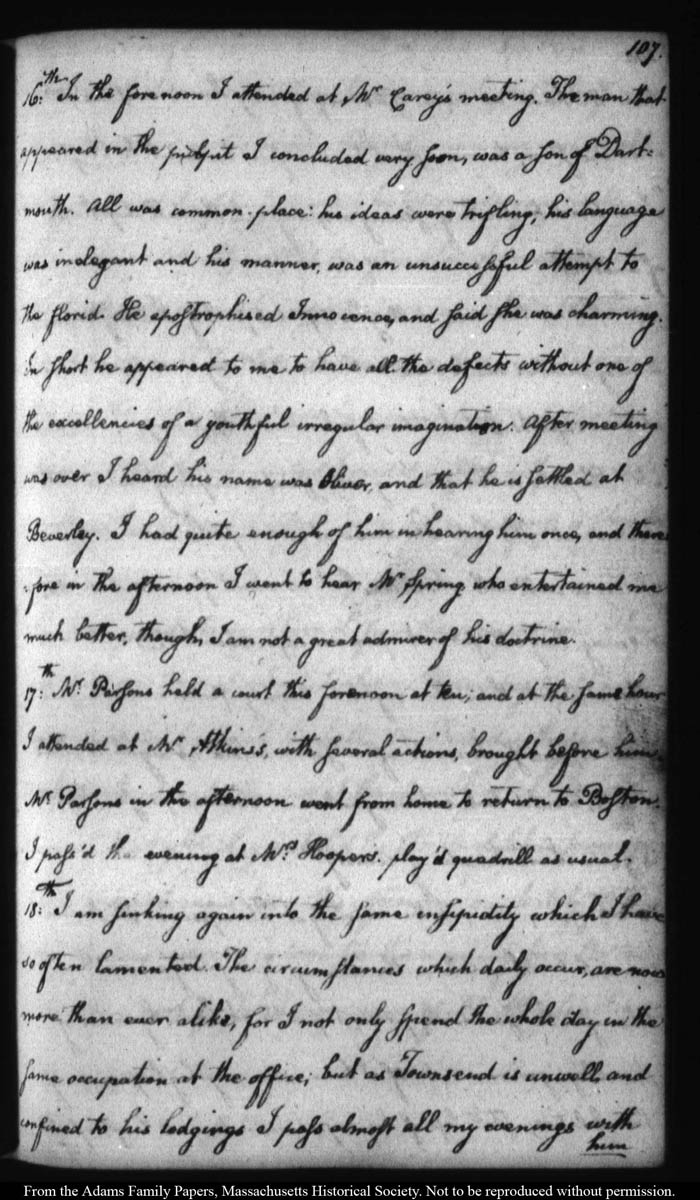 107.
16:th In the forenoon I attended at Mr Carey's meeting. The man that
appeared in the pulpit I concluded very soon, was a son of Dart-
mouth. All was common-place: his ideas were trifling; his language
was inelegant and his manner, was an unsuccessful attempt to
the florid. He apostrophised Innocence, and said she was charming.
In short he appeared to me to have all the defects without one of
the excellencies of a youthful irregular imagination. After meeting
was over I heard his name was Oliver, and that he is settled at
Beverley. I had quite enough of him in hearing him once, and there-
fore in the afternoon I went to hear Mr Spring who entertained me
much better, though, I am not a great admirer of his doctrine.
17:th Mr. Parsons held a court this forenoon at ten; and at the same hour
I attended at Mr Atkins's, with several actions, brought before him.
Mr Parsons in the afternoon went from home to return to Boston.
I pass'd the evening at Mrs Hooper's. play'd quadrill as usual.
18:th I am sinking again into the same insipidity which I have
so often lamented. The circumstances which daily occur, are now
more than ever alike, for I not only spend the whole day in the
same occupation at the office; but as Townsend is unwell, and
confined to his lodgings I pass almost all my evenings with
him
From the Adams Family Papers, Massachusetts Historical Society. Not to be reproduced without permission.